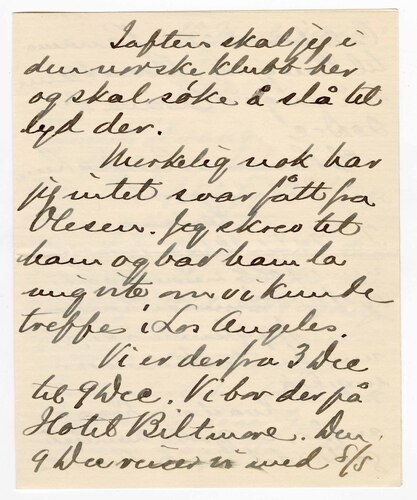 Iaften skal jeg i
den norske klubb her
og skal søke å slå til
lyd der.
Merkelig nok har
jeg intet svar fått fra
Olesen. Jeg skrev til
ham og bad ham la
mig vite om vi kunde
treffes i Los Angeles.
Vi er der fra 3 Dec
til 9 Dec. Vi bor der på
Hotel Biltmore. Den
9 Dec reiser vi med S/S